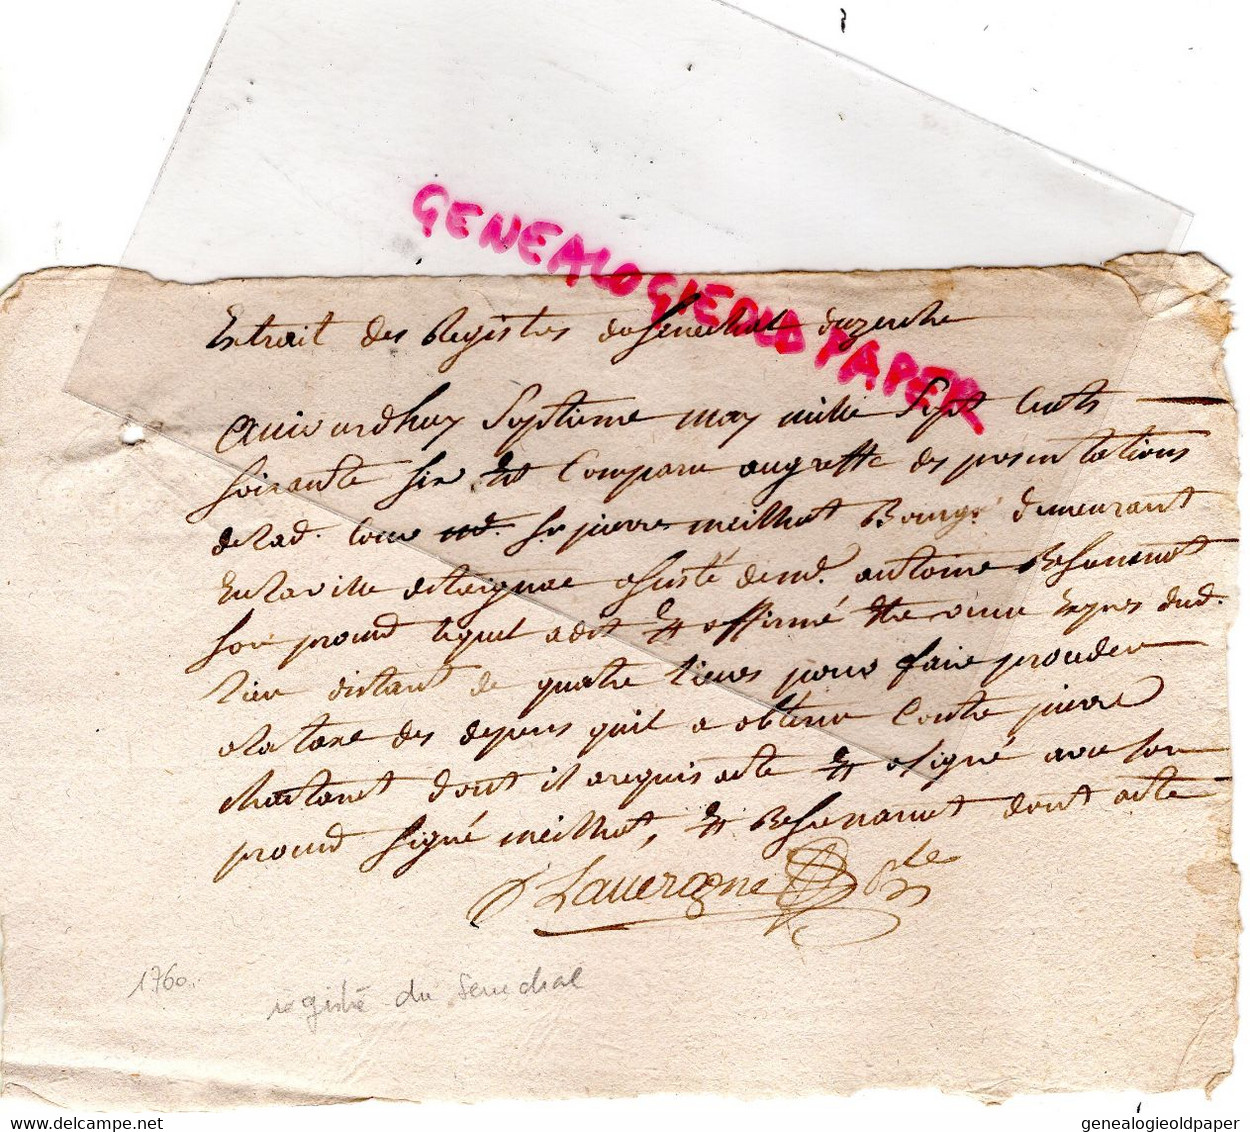 GENEALOGIEOLD PAPER
Extrait des Registres du senechal duzerche
aujourdhuy Septieme may mille Sept Cents
soixante six est Comparu au greffe des presentations
delad. Cour Sr pierre meilhot Bourg. demeurant
En la ville de treignac asisté de md. antoine
son procud lequel a dit Et affirmé Etre venu Expres dud.
lieu distant de quatre lieues pour faire proceder
a la taxe des depens quil a obtenu Contre pierre
dont il a requis acte Et a signé avec son
procud signé meilhot, Et dont acte
Lauergne
1760.
registre du senechal
delcampe.net
genealogieoldpaper